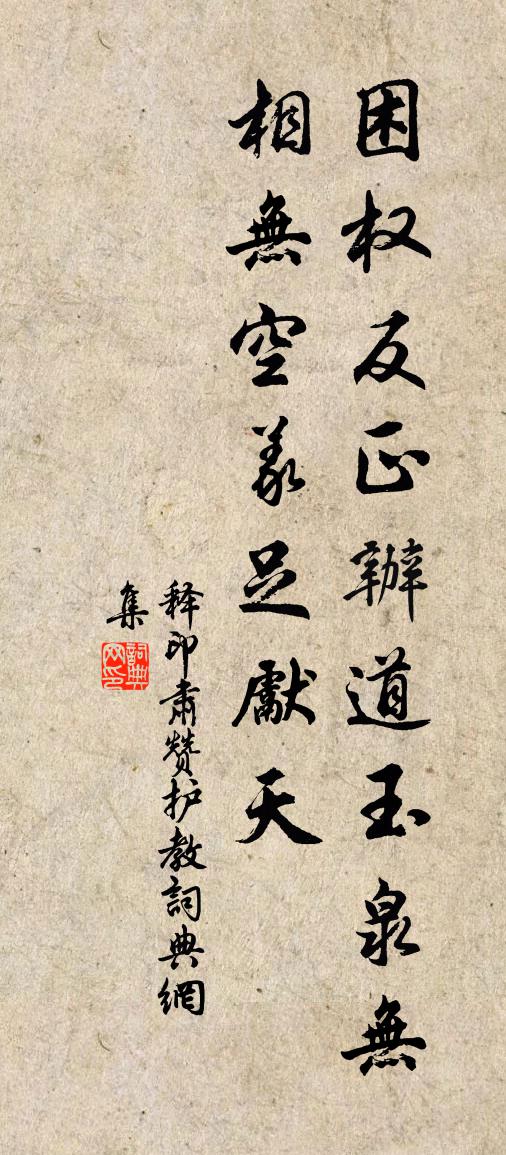 困权反正辦道玉泉無
相無空義足獻天
释印肅赞护教詞典網
集
詞典网印